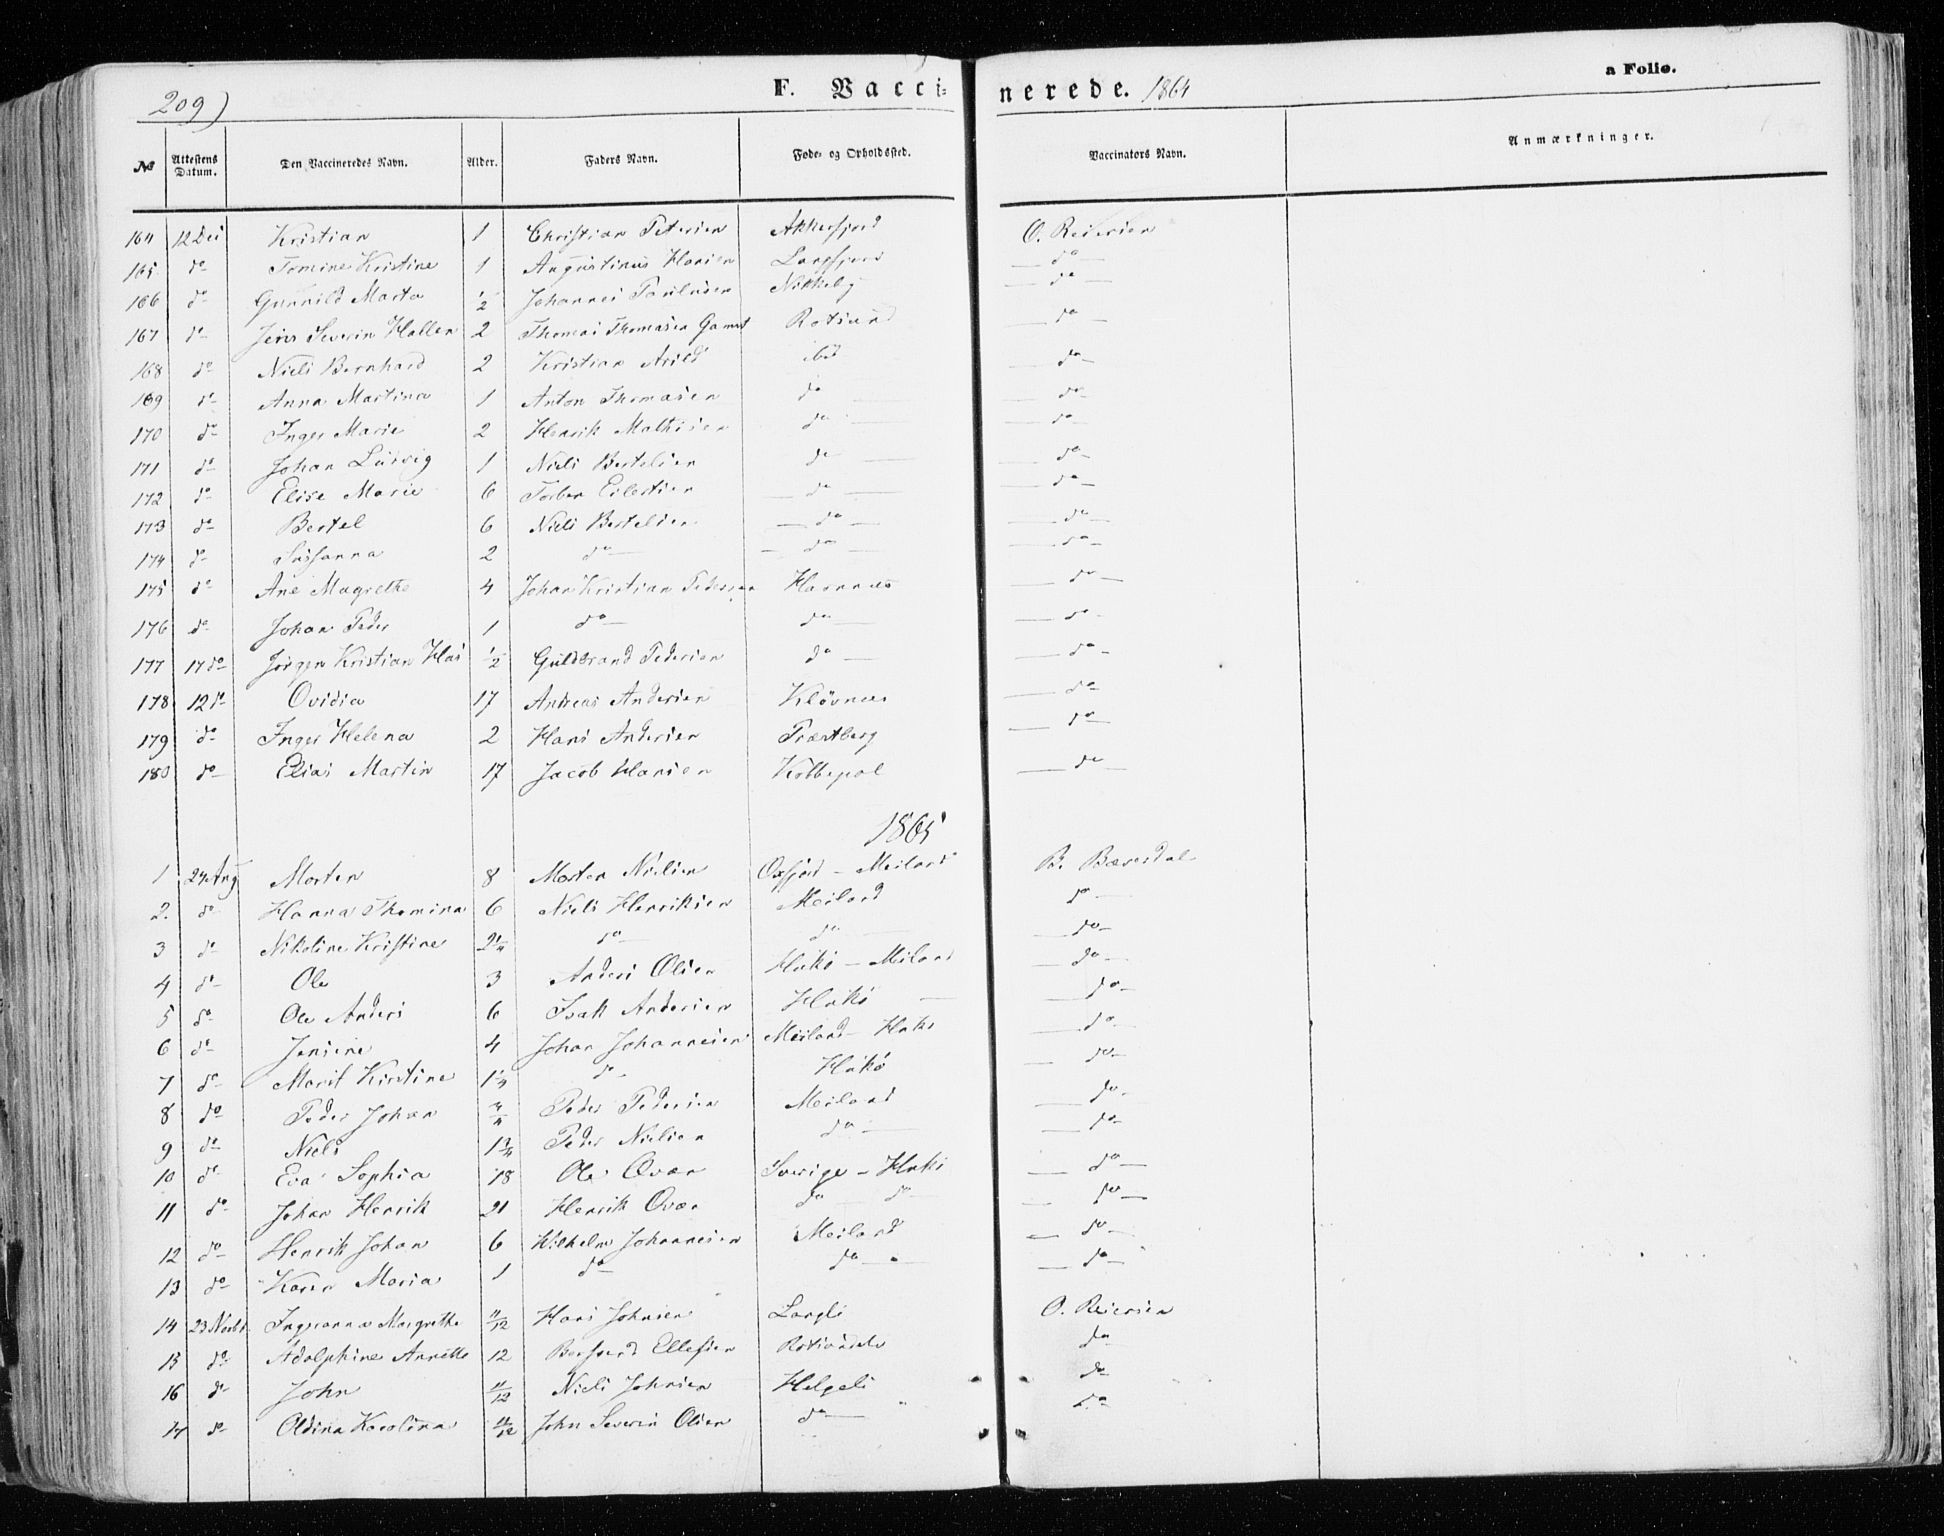 209)
F. Vacci-
nerede. 1864
a Folio.
№ Attestens Datum. Den Vaccineredes Navn. Alder. Faders Navn. Føde- og Opholdssted. Vaccinators Navn. Anmærkninger.
164 12 Dec Kristian 1 Christian Petersen Akkerfjord O. Reiersen
165 do Tomine Kristine 1 Augustinus Hansen Langfjord do
166 do Gunnild Marta 1/2 Johannes Paulusen Nikkeby do
167 do Jens Severin Hallen 2 Thomas Thomasen Gamst Rotsund do
168 do Niels Bernhard 2 Kristian Arild ibid do
169 do Anna Martina 1 Anton Thomasen do do
170 do Inger Marie 2 Henrik Mathisen do do
171 do Johan Ludvig 1 Niels Bertelsen do do
172 do Elise Marie 6 Torber Eilertsen do do
173 do Bertel 6 Niels Bertelsen do do
174 do Susanna 2 do do do
175 do Ane Magrethe 4 Johan Kristian Pedersen Havnnæs do
176 do Johan Peder 1 do do do
177 17 do Jørgen Kristian Has 1/2 Guldbrand Pedersen do do
178 12 do Ovidia 17 Andreas Andersen Kløvnes do
179 do Inger Helena 2 Hans Andersen Trætberg do
180 do Elias Martin 17 Jacob Hansen Kolbepol do
1865
1 24 Aug Morten 8 Morten Nielsen Oxfjord - Meiland B. Bæverdal
2. do Hanna Thomina 6 Niels Henriksen Meiland do
3 do Nikoline Kristine 2 1/4 do do do
4 do Ole 3 Anders Olsen Hukø - Meiland do
5 do Ole Anders 6 Isak Andersen Hukø do
6 do Jensine 4 Johan Johannesen Meiland - Hukø do
7 do Marit Kirstine 1 1/4 do Hukø do
8 do Peder Johan 3/4 Peder Pedersen Meiland do
9 do Niels 1 3/4 Peder Nielsen do do
10 do Eva Sophia 18 Ole Qvæn Sverige - Hukø do
11 do Johan Henrik 21 Henrik Qvæn do do do
12 do Henrik Johan 6 Wilhelm Johannesen Meiland do
13 do Karen Maria 1 do do do
14 23 Novbr Ingeranna Margrethe 11/12 Hans Johnsen Langli O. Reiersen
15 do Adolphine Annette 12 Ellefsen Rotsundelv do
16 do John 11/12 Niels Johnsen Helgeli do
17 do Oldina Karolina 11/12 John Severin Olsen do do